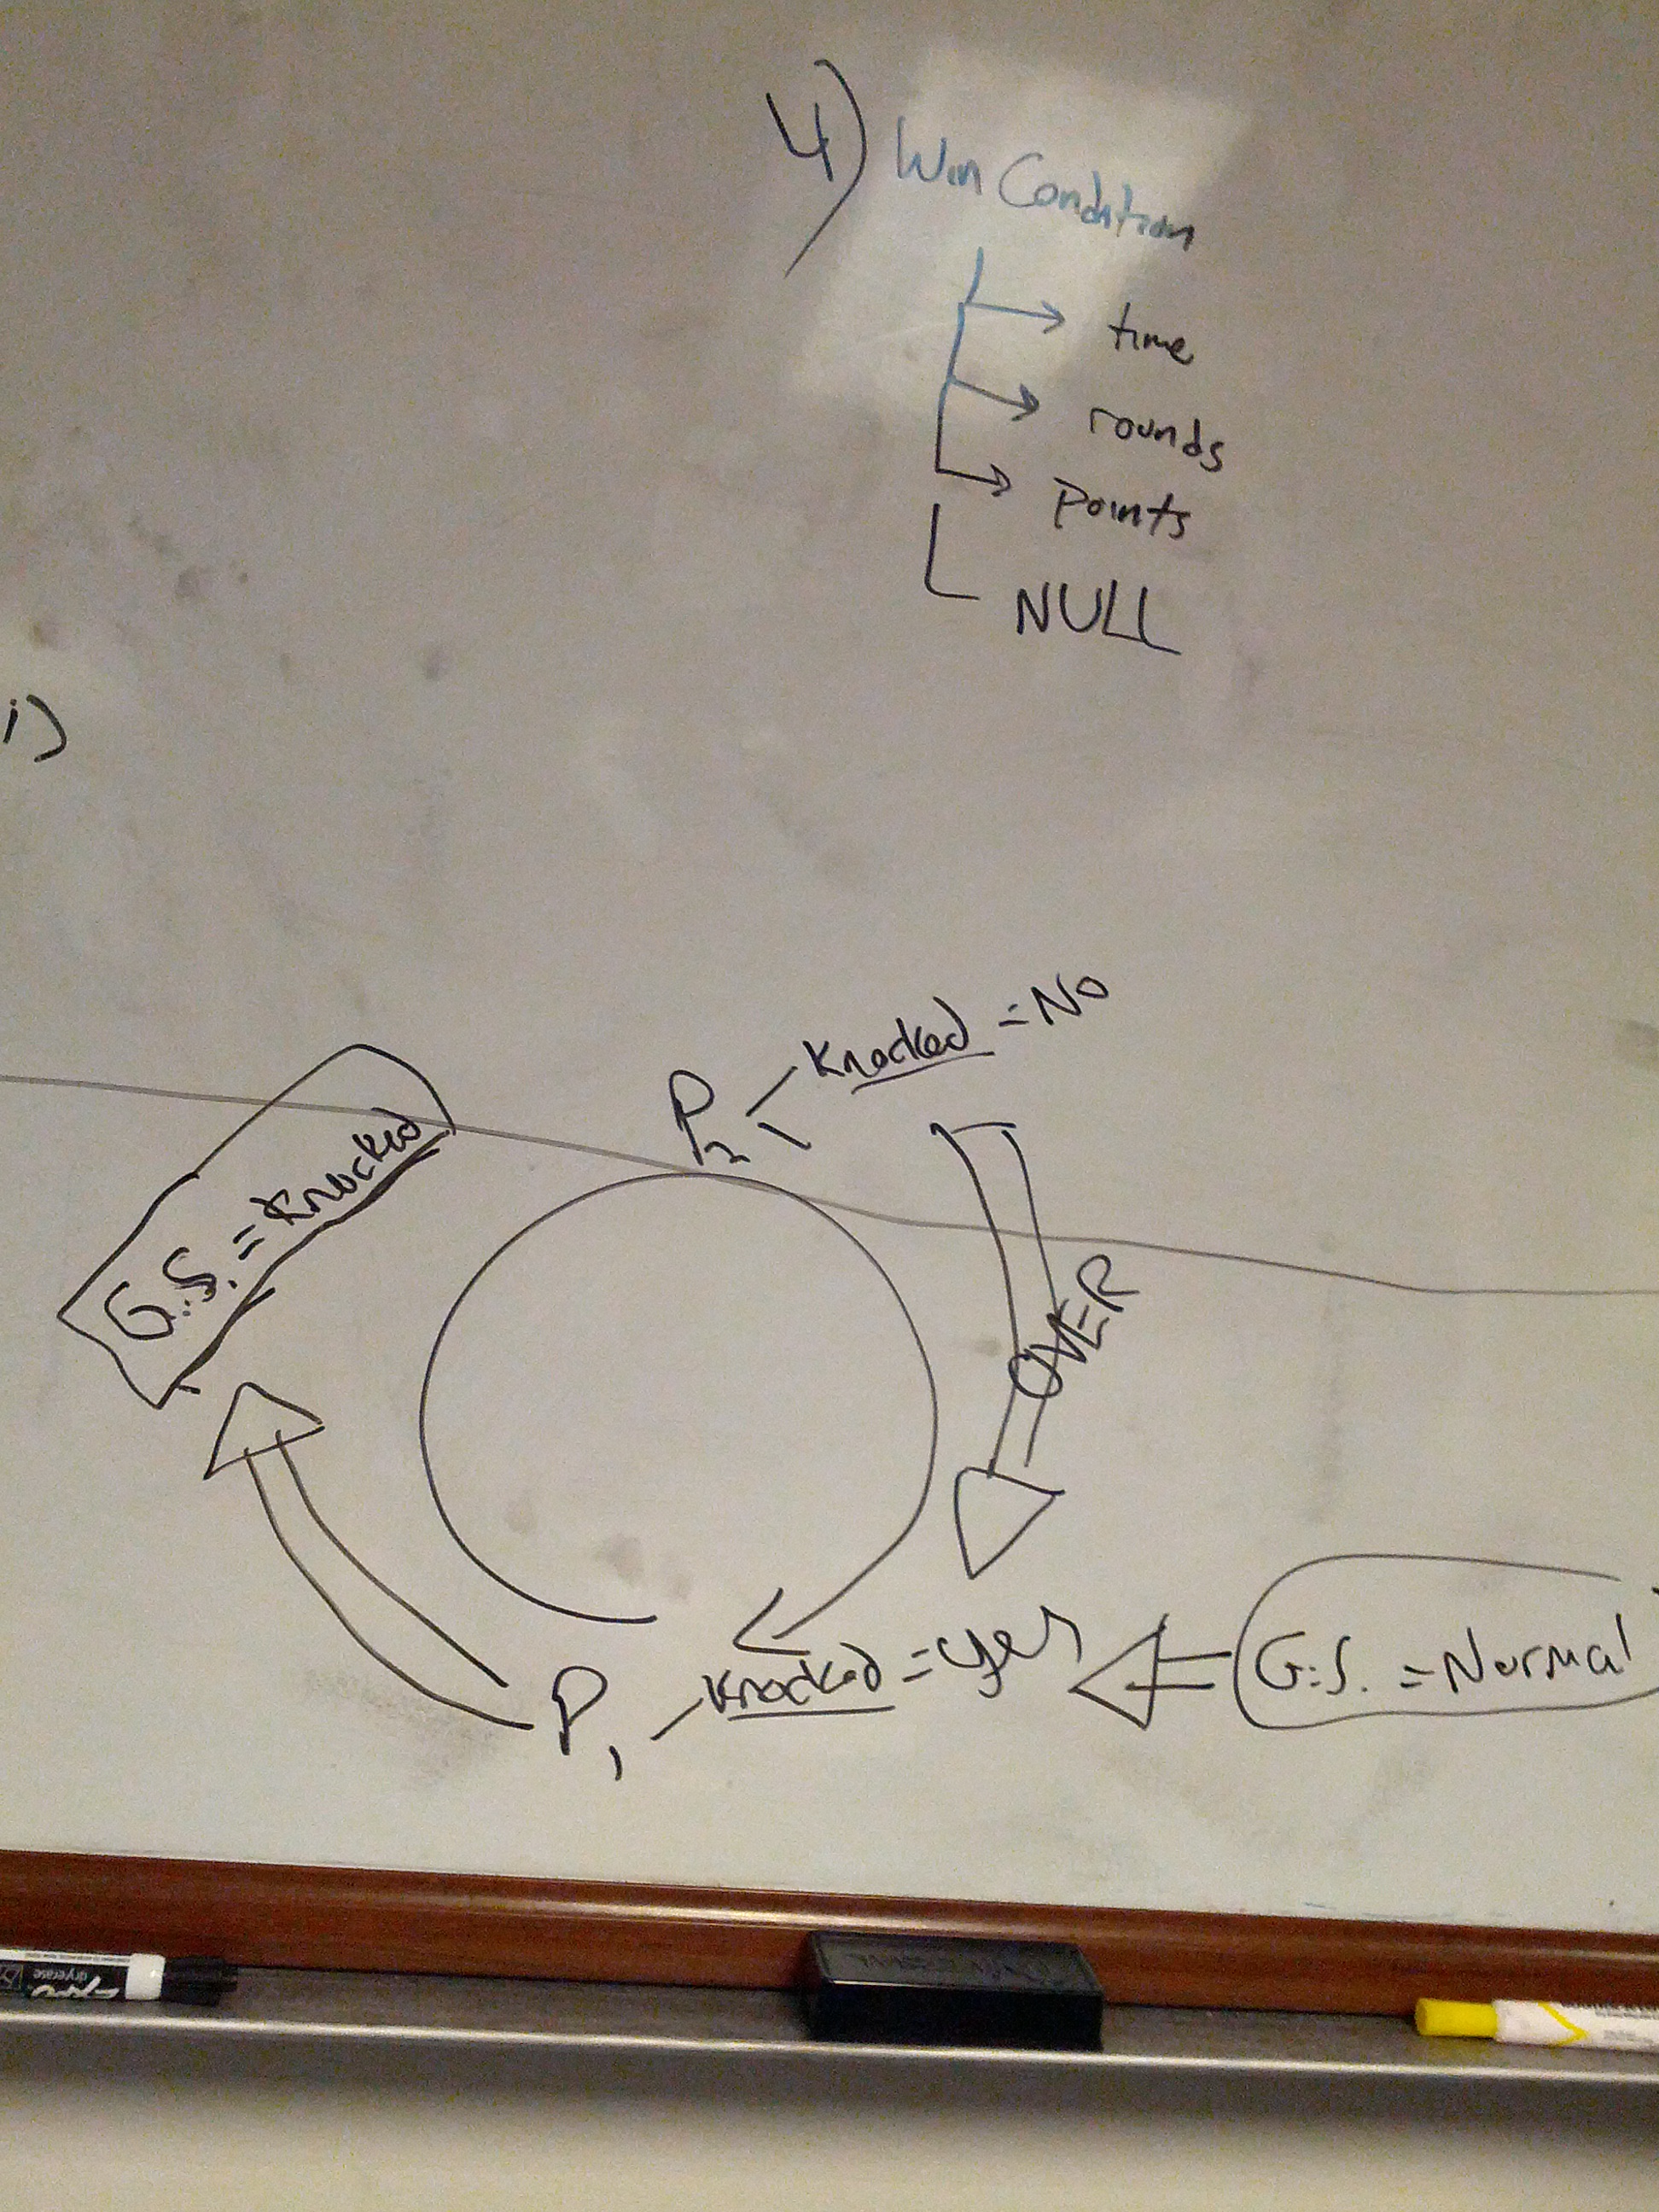 4) Win Condition
time
rounds
points
NULL
i)
P2 Knocked = No
G.S. = Knocked
OVER
P1 Knocked = yes
G.S. = Normal
EXPO
dryerase